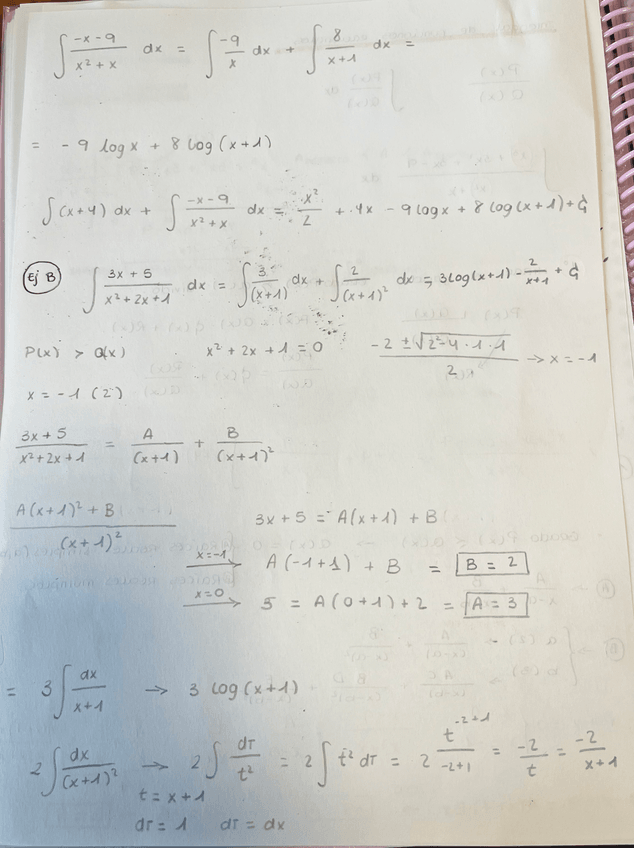 ∫ (-x-9)/(x² + x) dx = ∫ -9/x dx + ∫ 8/(x+1) dx =
= -9 log x + 8 log (x+1)
∫ (x+4) dx + ∫ (-x-9)/(x²+x) dx = x²/2 + 4x - 9 log x + 8 log (x+1) + C
Ej B ∫ (3x + 5)/(x² + 2x + 1) dx = ∫ 3/(x+1) dx + ∫ 2/(x+1)² dx = 3 log (x+1) - 2/(x+1) + C
P(x) > Q(x) x² + 2x + 1 = 0 (-2 ± √(2² - 4 · 1 · 1))/2 → x = -1
x = -1 (2)
(3x + 5)/(x² + 2x + 1) = A/(x+1) + B/(x+1)²
(A(x+1)² + B)/(x+1)² 3x + 5 = A(x+1) + B
x=-1 → A(-1+1) + B = B = 2
x=0 → 5 = A(0+1) + 2 = A = 3
= 3 ∫ dx/(x+1) → 3 log (x+1)
2 ∫ dx/(x+1)² → 2 ∫ dt/t² = 2 ∫ t² dt = 2 t^(-2+1)/(-2+1) = -2/t = -2/(x+1)
t = x+1
dt = 1 dt = dx